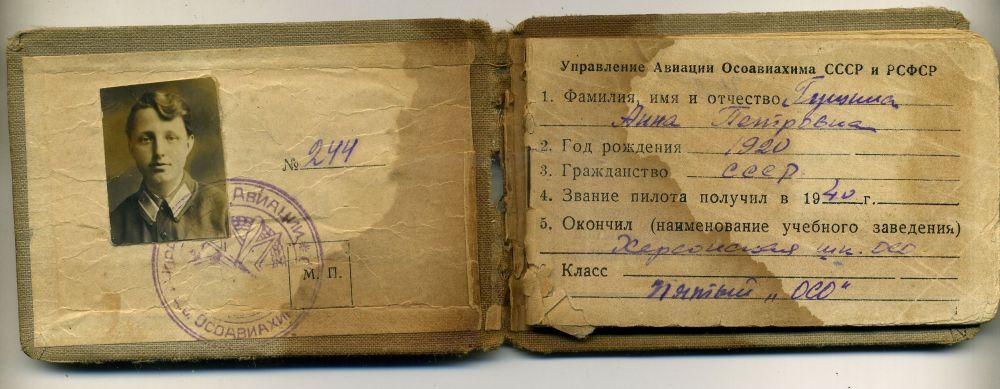 № 244
АВИАЦИИ
М. П.
ОСОАВИАХИ
Управление Авиации Осоавиахима СССР и РСФСР
1. Фамилия, имя и отчество
Анна Петровна
2. Год рождения 1920
3. Гражданство СССР
4. Звание пилота получил в 1940 г.
5. Окончил (наименование учебного заведения)
Херсонская шк. ОСО
Класс
Пятый „ОСО"